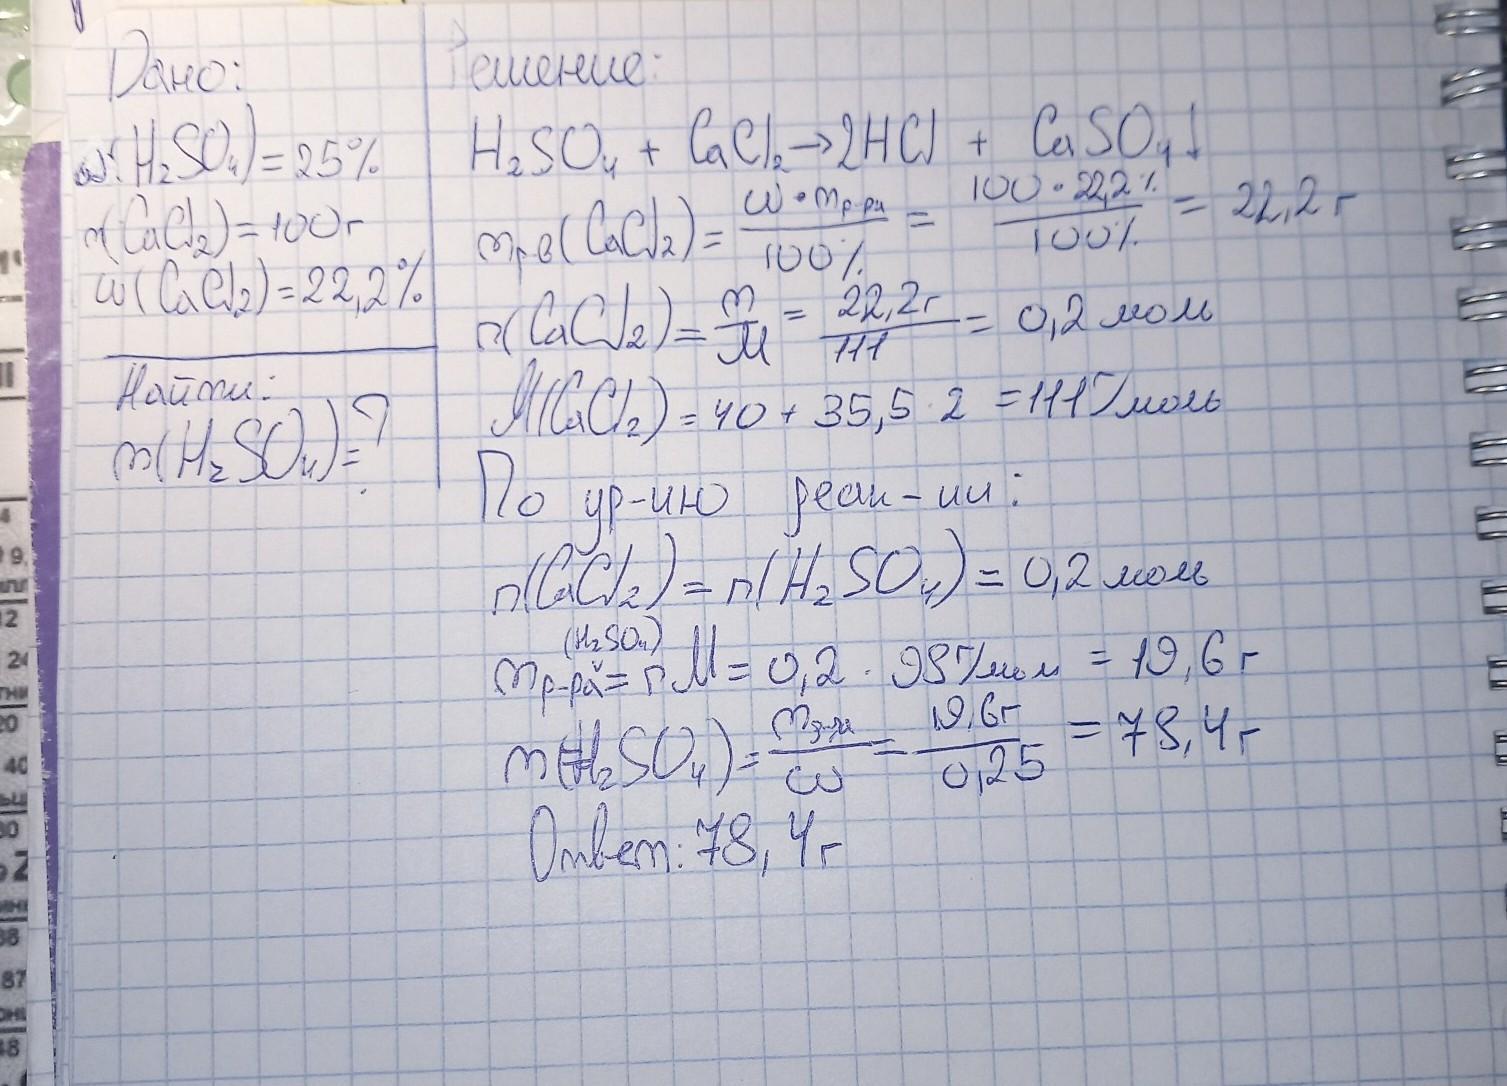 Дано:
ω(H₂SO₄) = 25%
m(CaCl₂) = 100г
ω(CaCl₂) = 22,2%
Найти:
m(H₂SO₄) = ?
Решение:
H₂SO₄ + CaCl₂ → 2HCl + CaSO₄↓
mр.в(CaCl₂) = ω · mр-ра / 100% = 100 · 22,2% / 100% = 22,2 г
n(CaCl₂) = m / M = 22,2г / 111 = 0,2 моль
M(CaCl₂) = 40 + 35,5 · 2 = 111 г/моль
По ур-ию реак-ии:
n(CaCl₂) = n(H₂SO₄) = 0,2 моль
(H₂SO₄)
mр-ра = n M = 0,2 · 98 г/моль = 19,6 г
m(H₂SO₄) = m / ω = 19,6г / 0,25 = 78,4г
Ответ: 78,4г
4
9,
12
24
20
40
30
2
38
87
48